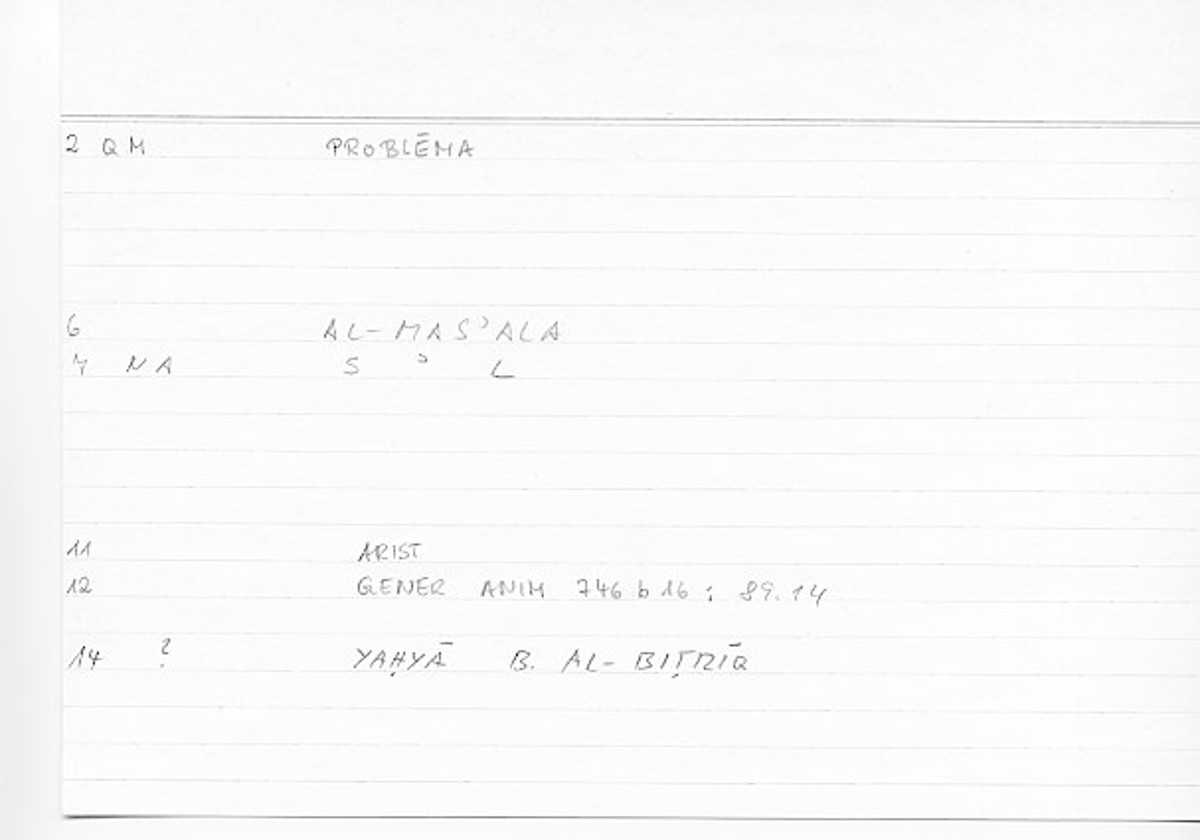 2 QM PROBLĒMA
6 AL-MASʾALA
7 NA S ʾ L
11 ARIST
12 GENER ANIM 746 b 16 : 89.14
14 ? YAḤYĀ B. AL-BIṬRĪQ